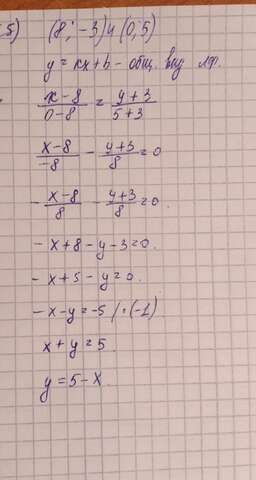 5) (8; -3) и (0, 5)
y = kx + b - общ. вид лф.
x-8/0-8 = y+3/5+3
x-8/-8 - y+3/8 = 0
- x-8/8 - y+3/8 = 0.
- x + 8 - y - 3 = 0.
- x + 5 - y = 0.
- x - y = -5 / · (-1)
x + y = 5
y = 5 - x